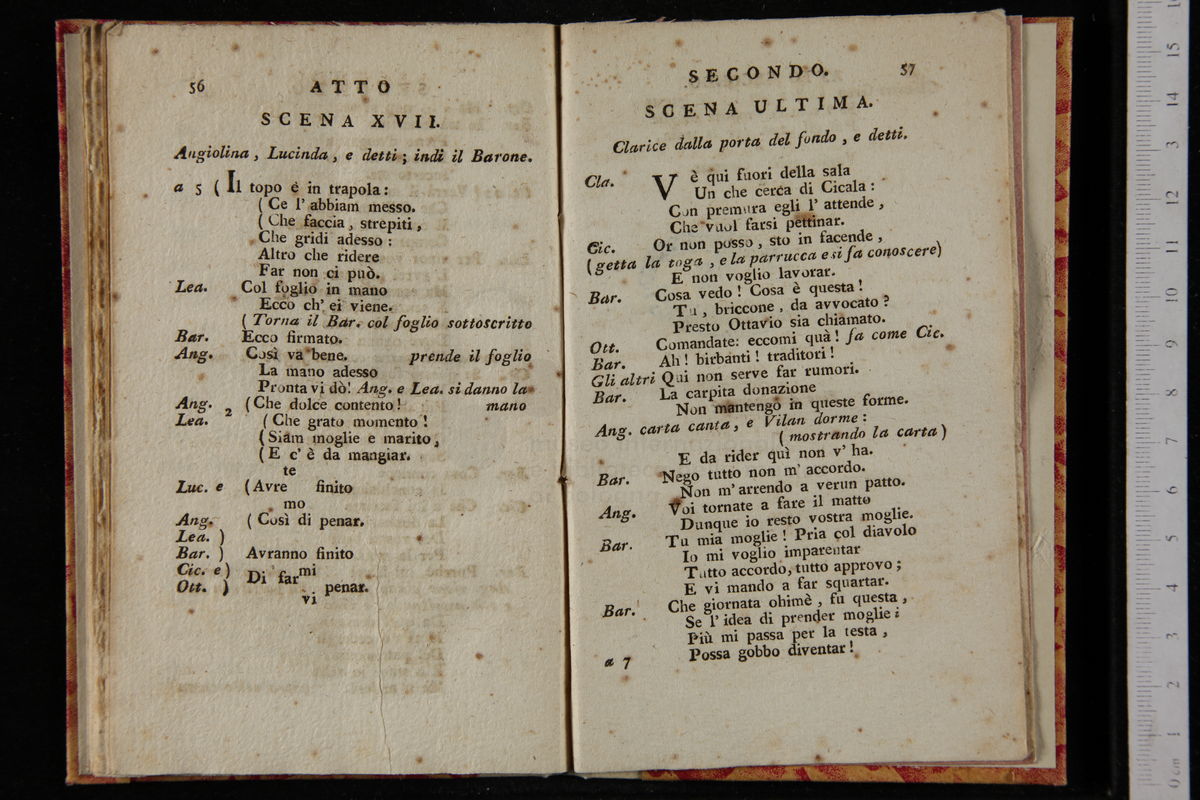 56
ATTO
SCENA XVII.
Angiolina, Lucinda, e detti; indi il Barone.
a 5 ( Il topo è in trapola:
( Ce l' abbiam messo.
( Che faccia, strepiti,
Che gridi adesso:
Altro che ridere
Far non ci può.
Lea. Col foglio in mano
Ecco ch' ei viene.
( Torna il Bar. col foglio sottoscritto
Bar. Ecco firmato.
Ang. Così va bene. prende il foglio
La mano adesso
Pronta vi dò! Ang. e Lea. si danno la
Ang. 2 ( Che dolce contento! mano
Lea. ( Che grato momento!
( Siam moglie e marito,
( E c' è da mangiar.
te
Luc. e ( Avre finito
mo
Ang. ( Così di penar.
Lea. )
Bar. ) Avranno finito
Cic. e ) Di far mi
Ott. ) penar.
vi
SECONDO. 57
SCENA ULTIMA.
Clarice dalla porta del fondo, e detti.
Cla. V è qui fuori della sala
Un che cerca di Cicala:
Con premura egli l' attende,
Che vuol farsi pettinar.
Cic. Or non posso, sto in facende,
( getta la toga, e la parrucca e si fa conoscere)
E non voglio lavorar.
Bar. Cosa vedo! Cosa è questa!
Tu, briccone, da avvocato?
Presto Ottavio sia chiamato.
Ott. Comandate: eccomi quà! fa come Cic.
Bar. Ah! birbanti! traditori!
Gli altri Qui non serve far rumori.
Bar. La carpita donazione
Non mantengo in queste forme.
Ang. carta canta, e Vilan dorme:
( mostrando la carta)
E da rider quì non v' ha.
Bar. Nego tutto non m' accordo.
Non m' arrendo a verun patto.
Ang. Voi tornate a fare il matto
Dunque io resto vostra moglie.
Bar. Tu mia moglie! Pria col diavolo
Io mi voglio imparentar
Tutto accordo, tutto approvo;
E vi mando a far squartar.
Bar. Che giornata ohimè, fu questa,
Se l' idea di prender moglie:
Più mi passa per la testa,
Possa gobbo diventar!
a 7
15
14
13
12
11
10
9
8
7
6
5
4
3
2
1
0 cm